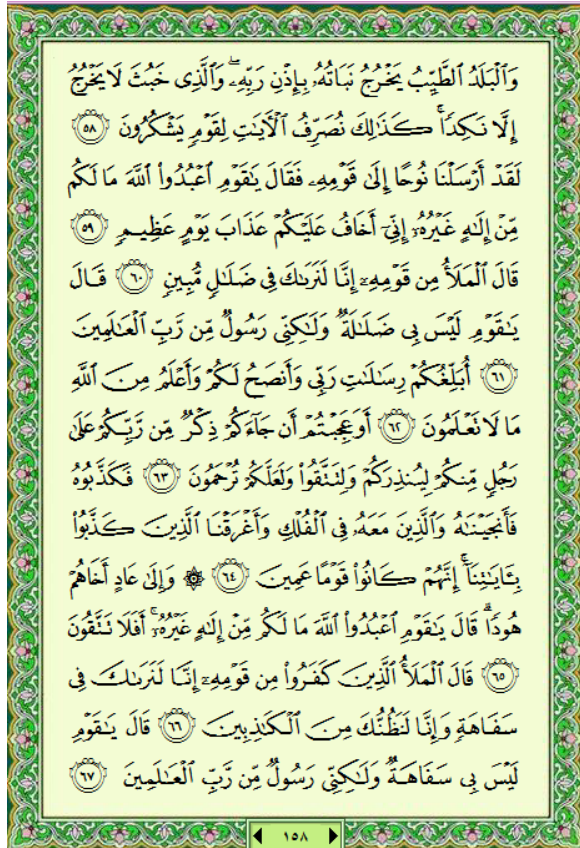 وَٱلۡبَلَدُ ٱلطَّيِّبُ يَخۡرُجُ نَبَاتُهُۥ بِإِذۡنِ رَبِّهِۦۖ وَٱلَّذِى خَبُثَ لَا يَخۡرُجُ
إِلَّا نَكِدٗاۚ كَذَٰلِكَ نُصَرِّفُ ٱلۡأٓيَٰتِ لِقَوۡمٖ يَشۡكُرُونَ ٥٨
لَقَدۡ أَرۡسَلۡنَا نُوحًا إِلَىٰ قَوۡمِهِۦ فَقَالَ يَٰقَوۡمِ ٱعۡبُدُواْ ٱللَّهَ مَا لَكُم
مِّنۡ إِلَٰهٍ غَيۡرُهُۥٓ إِنِّىٓ أَخَافُ عَلَيۡكُمۡ عَذَابَ يَوۡمٍ عَظِيمٖ ٥٩
قَالَ ٱلۡمَلَأُ مِن قَوۡمِهِۦٓ إِنَّا لَنَرَىٰكَ فِى ضَلَٰلٖ مُّبِينٖ ٦٠ قَالَ
يَٰقَوۡمِ لَيۡسَ بِى ضَلَٰلَةٞ وَلَٰكِنِّى رَسُولٞ مِّن رَّبِّ ٱلۡعَٰلَمِينَ
٦١ أُبَلِّغُكُمۡ رِسَٰلَٰتِ رَبِّى وَأَنصَحُ لَكُمۡ وَأَعۡلَمُ مِنَ ٱللَّهِ
مَا لَا تَعۡلَمُونَ ٦٢ أَوَعَجِبۡتُمۡ أَن جَآءَكُمۡ ذِكۡرٞ مِّن رَّبِّكُمۡ عَلَىٰ
رَجُلٖ مِّنكُمۡ لِيُنذِرَكُمۡ وَلِتَتَّقُواْ وَلَعَلَّكُمۡ تُرۡحَمُونَ ٦٣ فَكَذَّبُوهُ
فَأَنجَيۡنَٰهُ وَٱلَّذِينَ مَعَهُۥ فِى ٱلۡفُلۡكِ وَأَغۡرَقۡنَا ٱلَّذِينَ كَذَّبُواْ
بِـَٔايَٰتِنَآۚ إِنَّهُمۡ كَانُواْ قَوۡمًا عَمِينَ ٦٤ ۞ وَإِلَىٰ عَادٍ أَخَاهُمۡ
هُودٗاۚ قَالَ يَٰقَوۡمِ ٱعۡبُدُواْ ٱللَّهَ مَا لَكُم مِّنۡ إِلَٰهٍ غَيۡرُهُۥٓۚ أَفَلَا تَتَّقُونَ
٦٥ قَالَ ٱلۡمَلَأُ ٱلَّذِينَ كَفَرُواْ مِن قَوۡمِهِۦٓ إِنَّا لَنَرَىٰكَ فِى
سَفَاهَةٖ وَإِنَّا لَنَظُنُّكَ مِنَ ٱلۡكَٰذِبِينَ ٦٦ قَالَ يَٰقَوۡمِ
لَيۡسَ بِى سَفَاهَةٞ وَلَٰكِنِّى رَسُولٞ مِّن رَّبِّ ٱلۡعَٰلَمِينَ ٦٧
١٥٨